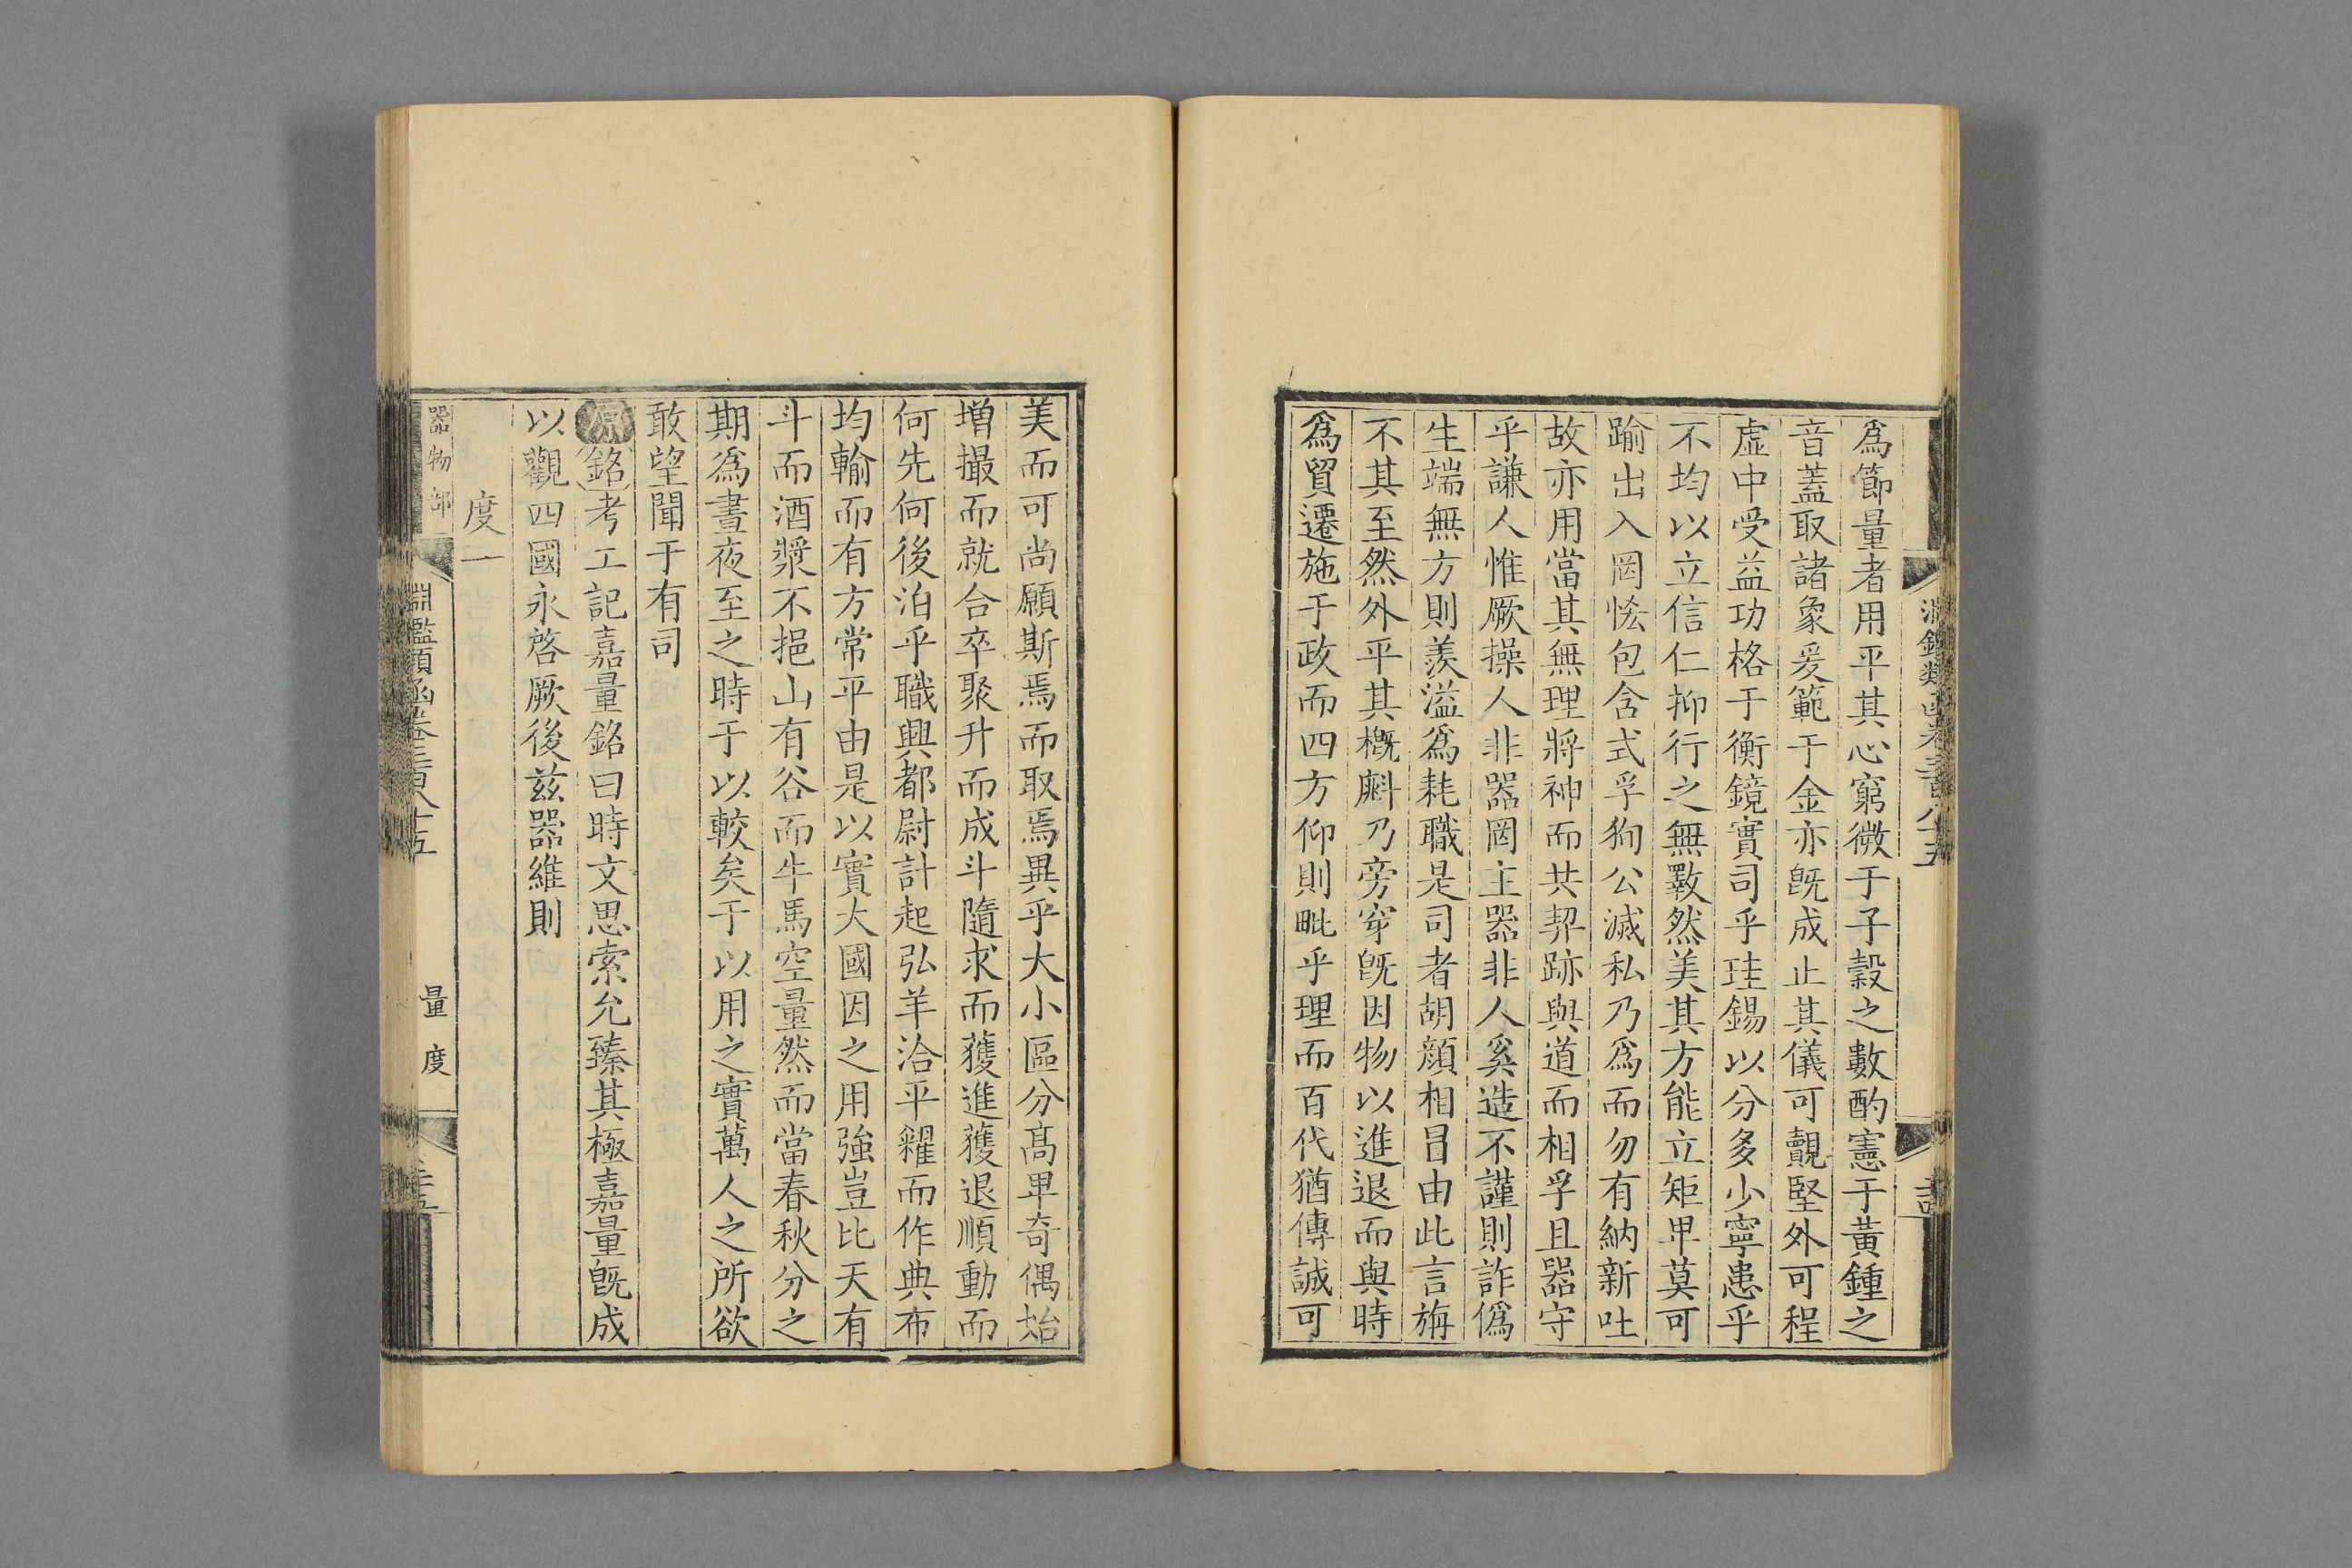 爲節量者用平其心窮微于子穀之數酌憲于黃鍾之
音蓋取諸象爰範于金亦旣成止其儀可覿堅外可程
虛中受益功格于衡鏡實司乎珪錫以分多少寧患乎
不均以立信仁抑行之無斁然美其方能立矩卑莫可
踰出入罔恡包含式孚狥公滅私乃爲而勿有納新吐
故亦用當其無理將神而共契跡與道而相孚且器守
乎謙人惟厥操人非器罔主器非人奚造不謹則詐僞
生端無方則羨溢爲耗職是司者胡顔相冒由此言旃
不其至然外平其槪㪺乃旁穿旣因物以進退而與時
爲貿遷施于政而四方仰則毗乎理而百代猶傳誠可
美而可尚願斯焉而取焉異乎大小區分高卑奇偶始
增撮而就合卒聚升而成斗隨求而獲進獲退順動而
何先何後泊乎職興都尉計起弘羊洽平糴而作典布
均輸而有方常平由是以實大國因之用強豈比天有
斗而酒漿不挹山有谷而牛馬空量然而當春秋分之
期爲晝夜至之時于以較矣于以用之實萬人之所欲
敢望聞于有司
原銘考工記嘉量銘曰時文思索允臻其極嘉量旣成
以觀四國永啓厥後茲器維則
度一
器物部 淵鑑類函卷三百八十五 量 度